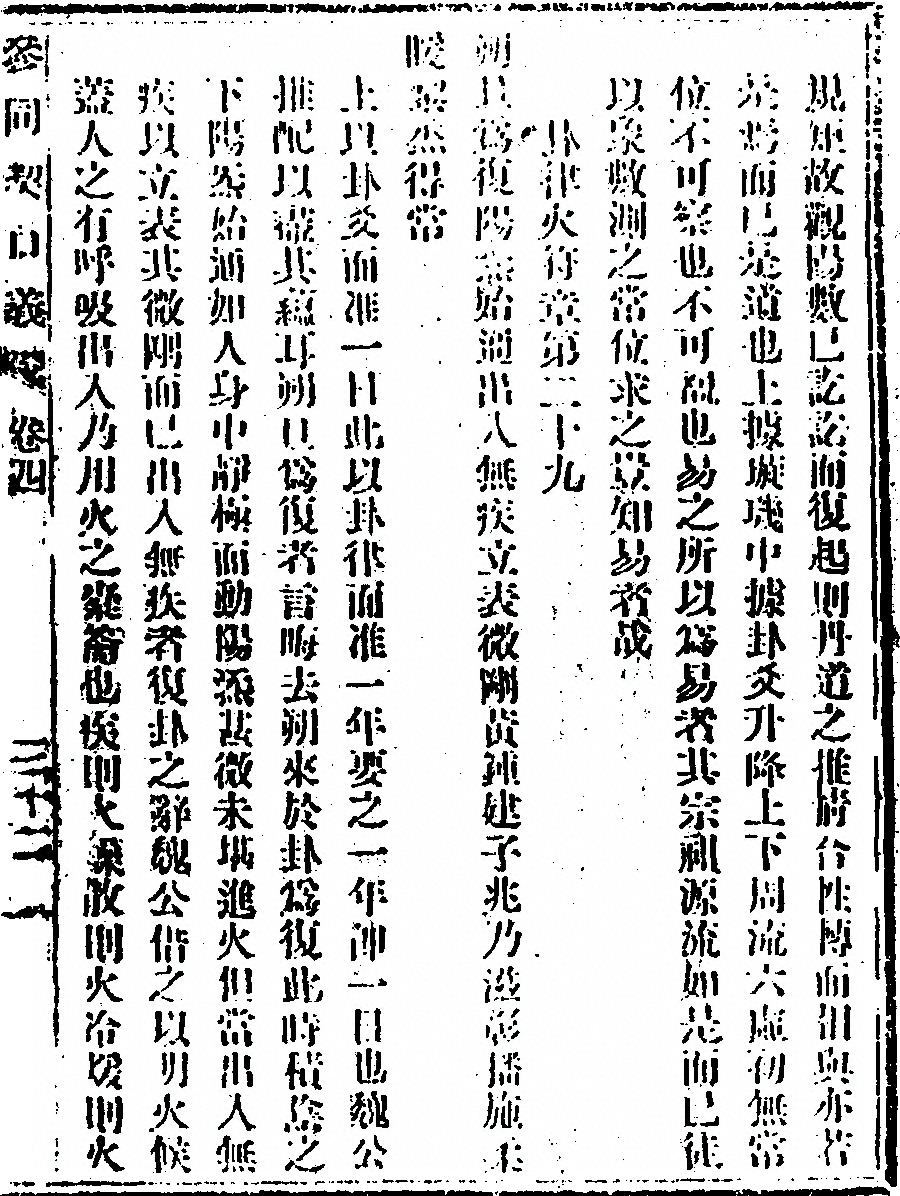 規矩故觀陽數已訖訖而復起則丹道之推度符性轉而相與亦若
是焉而已是道也上據璇璣中據卦爻升降上下周流六虛初無常
位不可察也不可執也易之所以為易者其宗祖源流如是而已徒
以象數測之常位求之豈知易者哉
卦律火符章第二十九
朔旦為復陽炁始通出入無疾立表微剛黃鍾建子兆乃滋彰播施柔
暖黎烝得常
上以卦爻而準一日此以卦律而準一年要之一年即一日也魏公
推配以盡其蘊耳朔旦為復者言晦去朔來於卦為復此時積陰之
下陽炁始通如人身中靜極而動陽炁甚微未堪進火但當出入無
疾以立表其微剛而已出入無疾者復卦之辭魏公借之以明火候
蓋人之有呼吸出入乃用火之橐籥也疾則火燥散則火冷煖則火
參同契口義 卷四
三十二